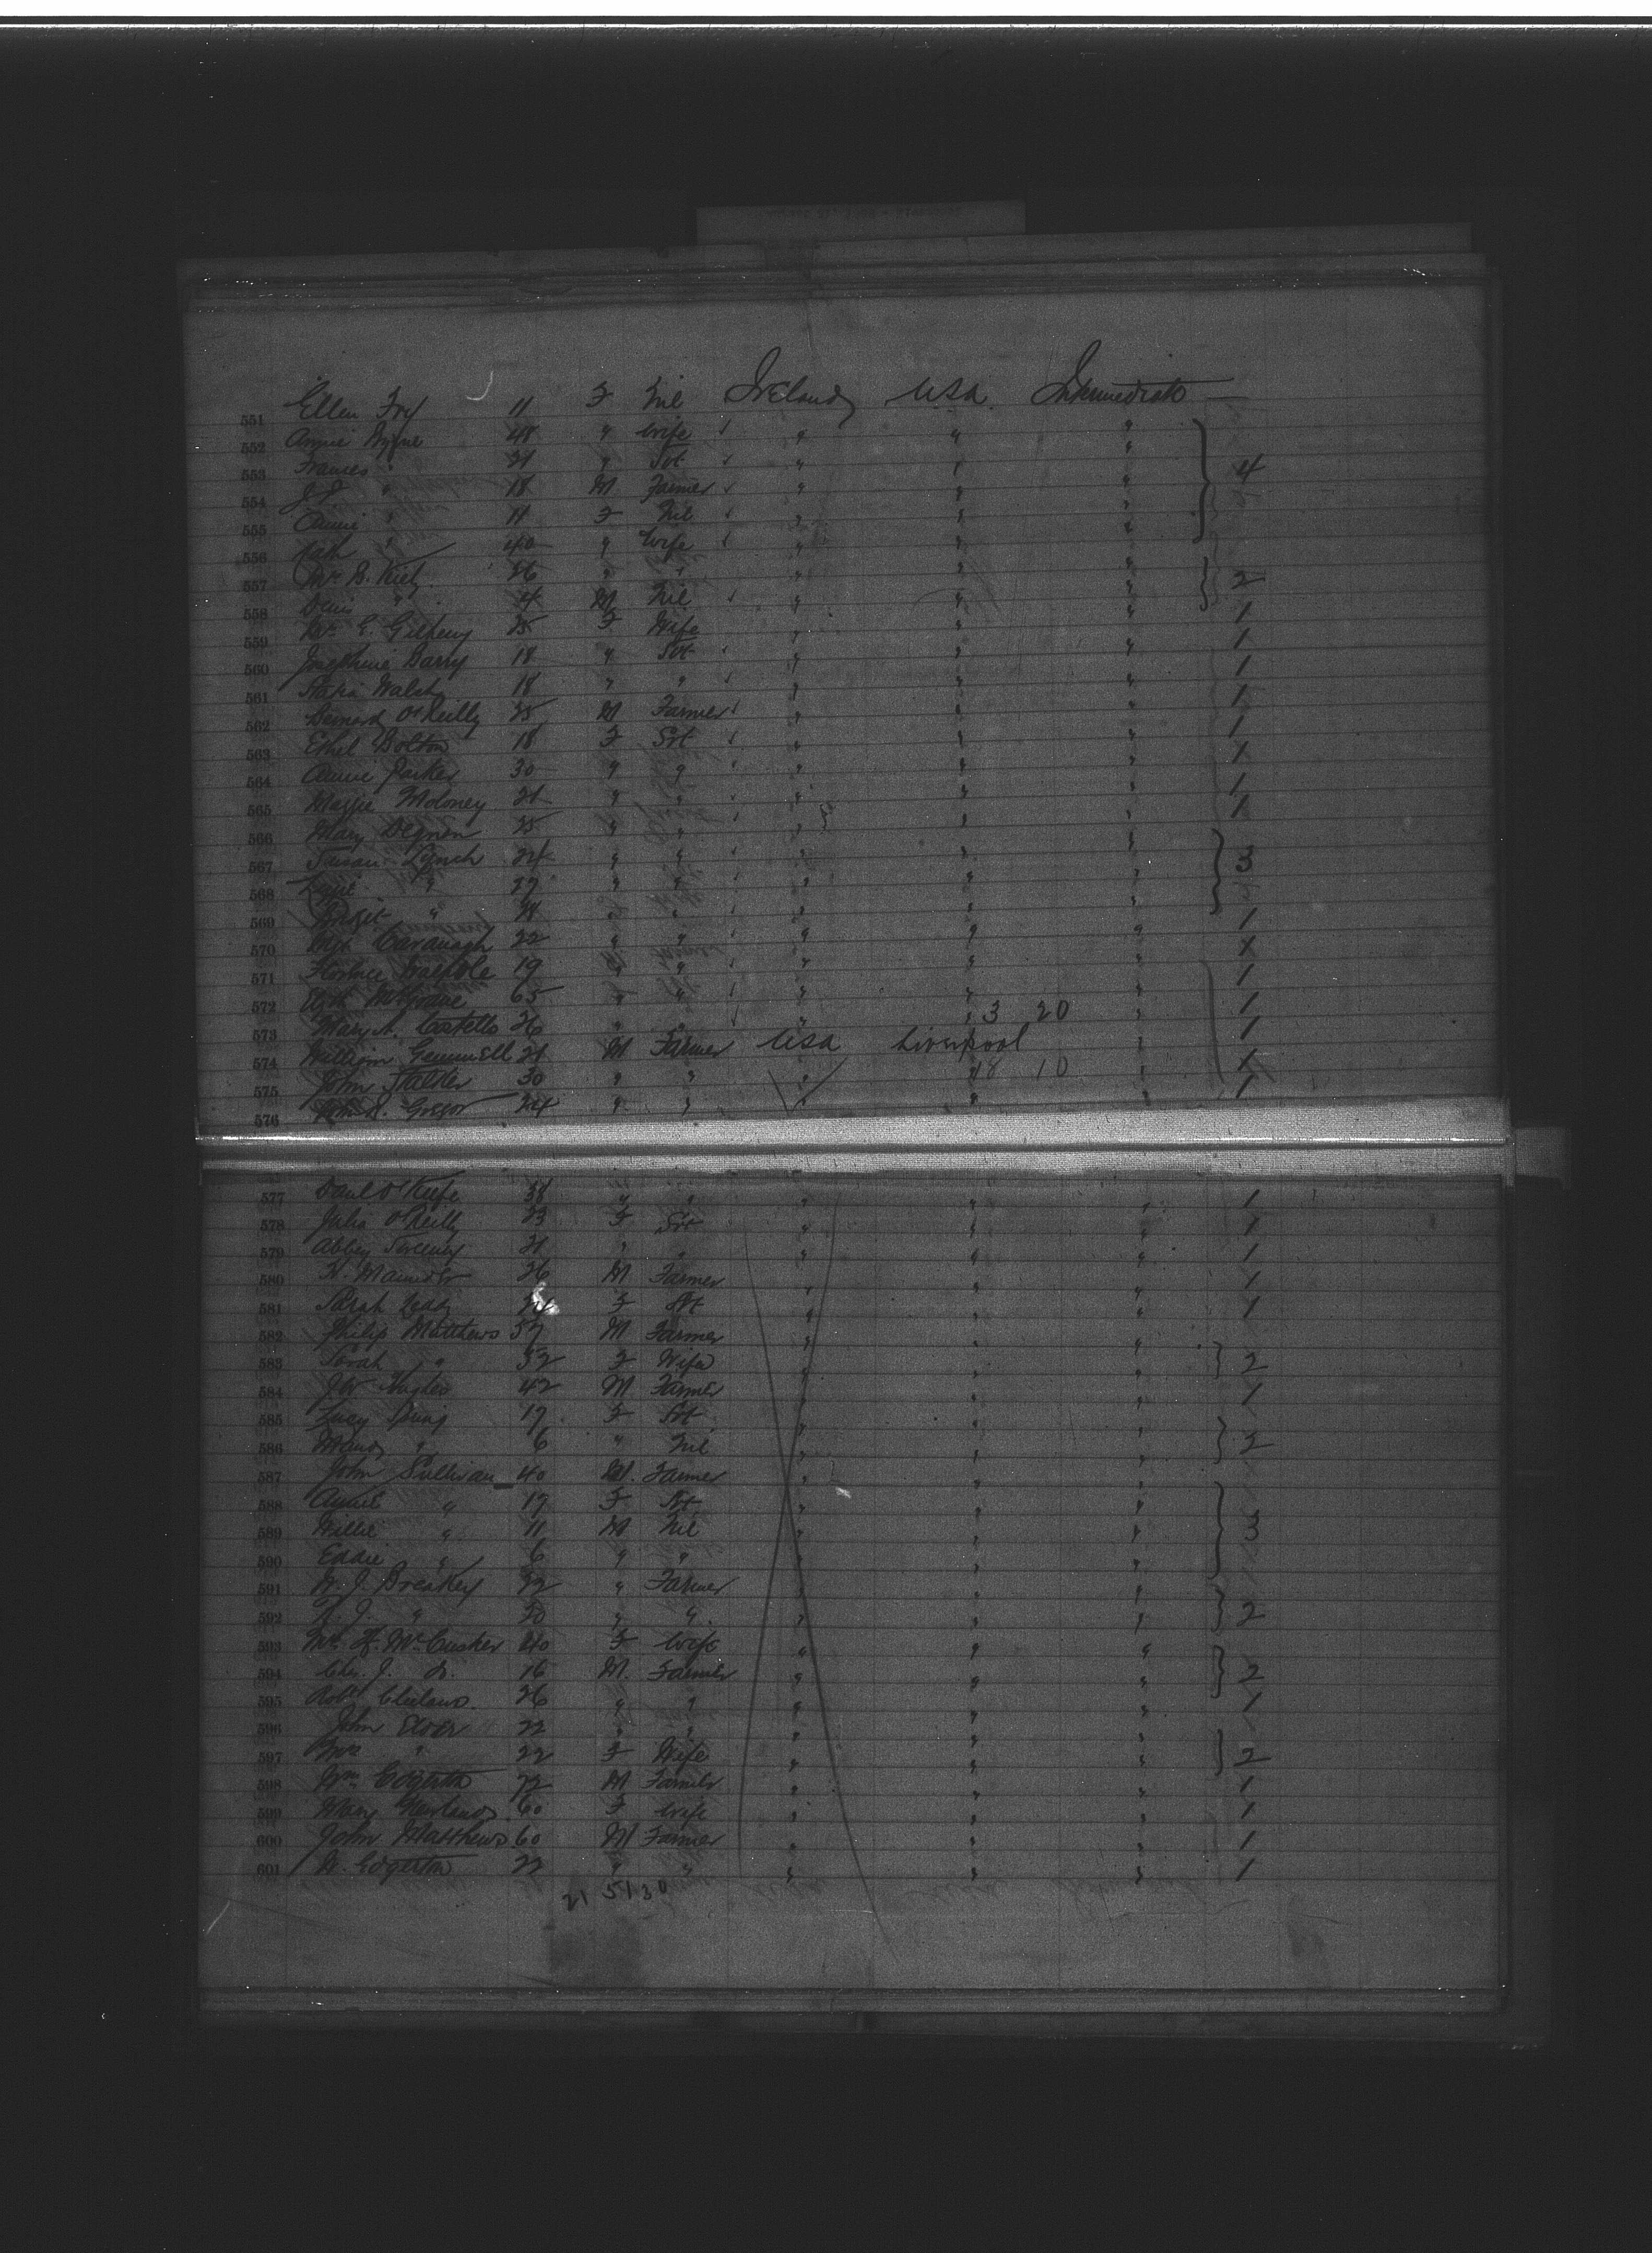 551 Ellen Fry 11 F Nil Ireland USA Intermediate —
552 Annie Byrne 48 " Wife " " "
553 Frances " 21 " Svt " " "
554 J.J. " 18 M Farmer " " " 4
555 Annie " 11 F Nil " " "
556 " 40 " Wife " " "
557 Mrs B. Kiely 26 " " " " " 2
558 Denis " 4 M Nil " " "
559 Mrs E. Gilheny 25 F Wife " " " 1
560 Josephine Barry 18 " Svt " " " 1
561 Walsh 18 " " " " " 1
562 Bernard O'Reilly 25 M Farmer " " " 1
563 Ethel Bolton 18 F Svt " " " 1
564 Annie Parker 30 " " " " " 1
565 Maggie Moloney 21 " " " " " 1
566 Mary Degnan 25 " " " " " 1
567 Susan Lynch 24 " " " " " 3
568 Lizzie " 27 " " " " "
569 Bridget " " " " " "
570 Cavanagh 22 " " " " " 1
571 Florence Walpole 19 " " " " " 1
572 65 " " " " " 1
573 Mary A. Costello 26 " " " " 3 20 " 1
574 William Gemmell 21 M Farmer USA Liverpool " 1
575 John Stalker 30 " " " " 18 10 " 1
576 John R. Gregor 24 " " " " " 1
577 Danl O'Keefe 38 " " " " " 1
578 Julia O'Reilly 23 F Svt " " " 1
579 Abbey Sweeney 21 " " " " " 1
580 H. Maunder 26 M Farmer " " " 1
581 Sarah Leddy F Svt " " " 1
582 Philip Matthews 57 M Farmer " " "
583 Sarah " 52 F Wife " " " 2
584 J W Hughes 42 M Farmer " " " 1
585 Lucy Spring 17 F Svt " " "
586 " 6 " Nil " " " 2
587 John Sullivan 40 M. Farmer " " "
588 Annie " 17 F Svt " " "
589 Willie " 11 M Nil " " " 3
590 Eddie " 6 " " " " "
591 W. J. Breakey 32 " Farmer " " "
592 J. " " " " " " 2
593 Mrs H. McCusker 40 F Wife " " "
594 Chs. J. Jr. 16 M. Farmer " " " 2
595 Robt Cleland 26 " " " " " 1
596 John Elder 22 " " " " "
597 Mrs " 22 F Wife " " " 2
598 Wm Edgerton 72 M Farmer " " " 1
599 Mary 60 F Wife " " " 1
600 John Matthews 60 M Farmer " " " 1
601 W. Edgerton 22 " " " " " 1
21 51 30